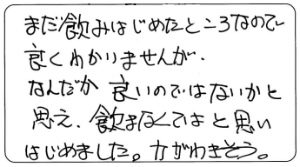 まだ飲みはじめたところなので
良くわかりませんが、
なんだか 良いのではないかと
思え、飲まなくてはと思い
はじめました。